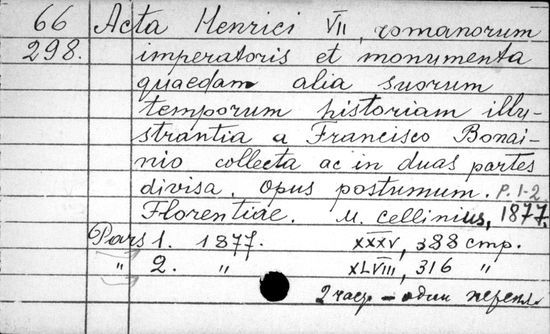 66 Acta Henrici VII, romanorum
298. imperatoris et monumenta
quaedam alia suorum
temporum historiam illy-
strantia a Francisco Bonai-
nio collecta ac in duas partes
divisa. Opus postumum. P. 1-2
Florentiae. M. Cellinius, 1877.
Pars 1. 1877. XXXV, 388 стр.
" 2. " XLVIII, 316 "
2 част – один перепл.